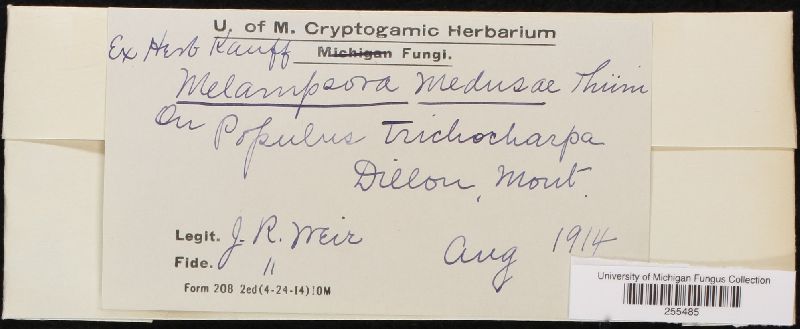 U. of M. Cryptogamic Herbarium
Ex Herb Kauff Michigan Fungi.
Melampsora Medusae Thüm
On Populus trichocharpa
Dillon, Mont.
Legit. J. R. Weir
Aug 1914
Fide. "
Form 208 2ed(4-24-14)10M
University of Michigan Fungus Collection
255485